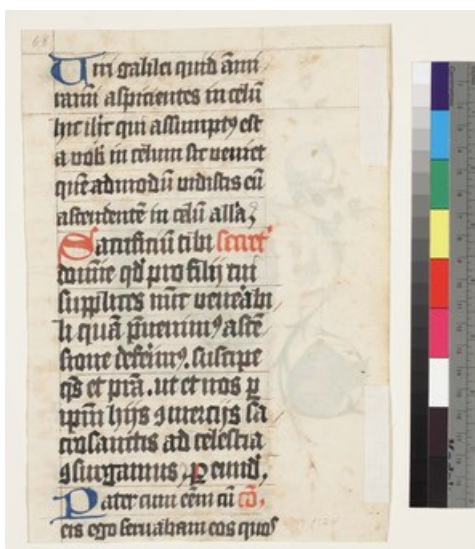 68
Uiri galilei quid ãmi
ramĩ aspicientes in celũ
hic iħc qui assumptꝰ est
a vob in celum sic veniet
quẽadmodũ vidistis eũ
ascendentẽ in celũ alla,
Sacrificiũ tibi secret
domĩe qđ pro filij tui
supplices nũc venẽabi
li quã p̃uenimꝰ ascẽ
sione deferimꝰ. suscipe
qs et pñta. ut et nos ꝑ
ipm̃ hijs ꝯmercijs sã
crosanctis ad celestia
ꝯsurgamus, ꝑ eund,
Pater cum eẽm cũ cõ,
eis ego seruabam eos quos